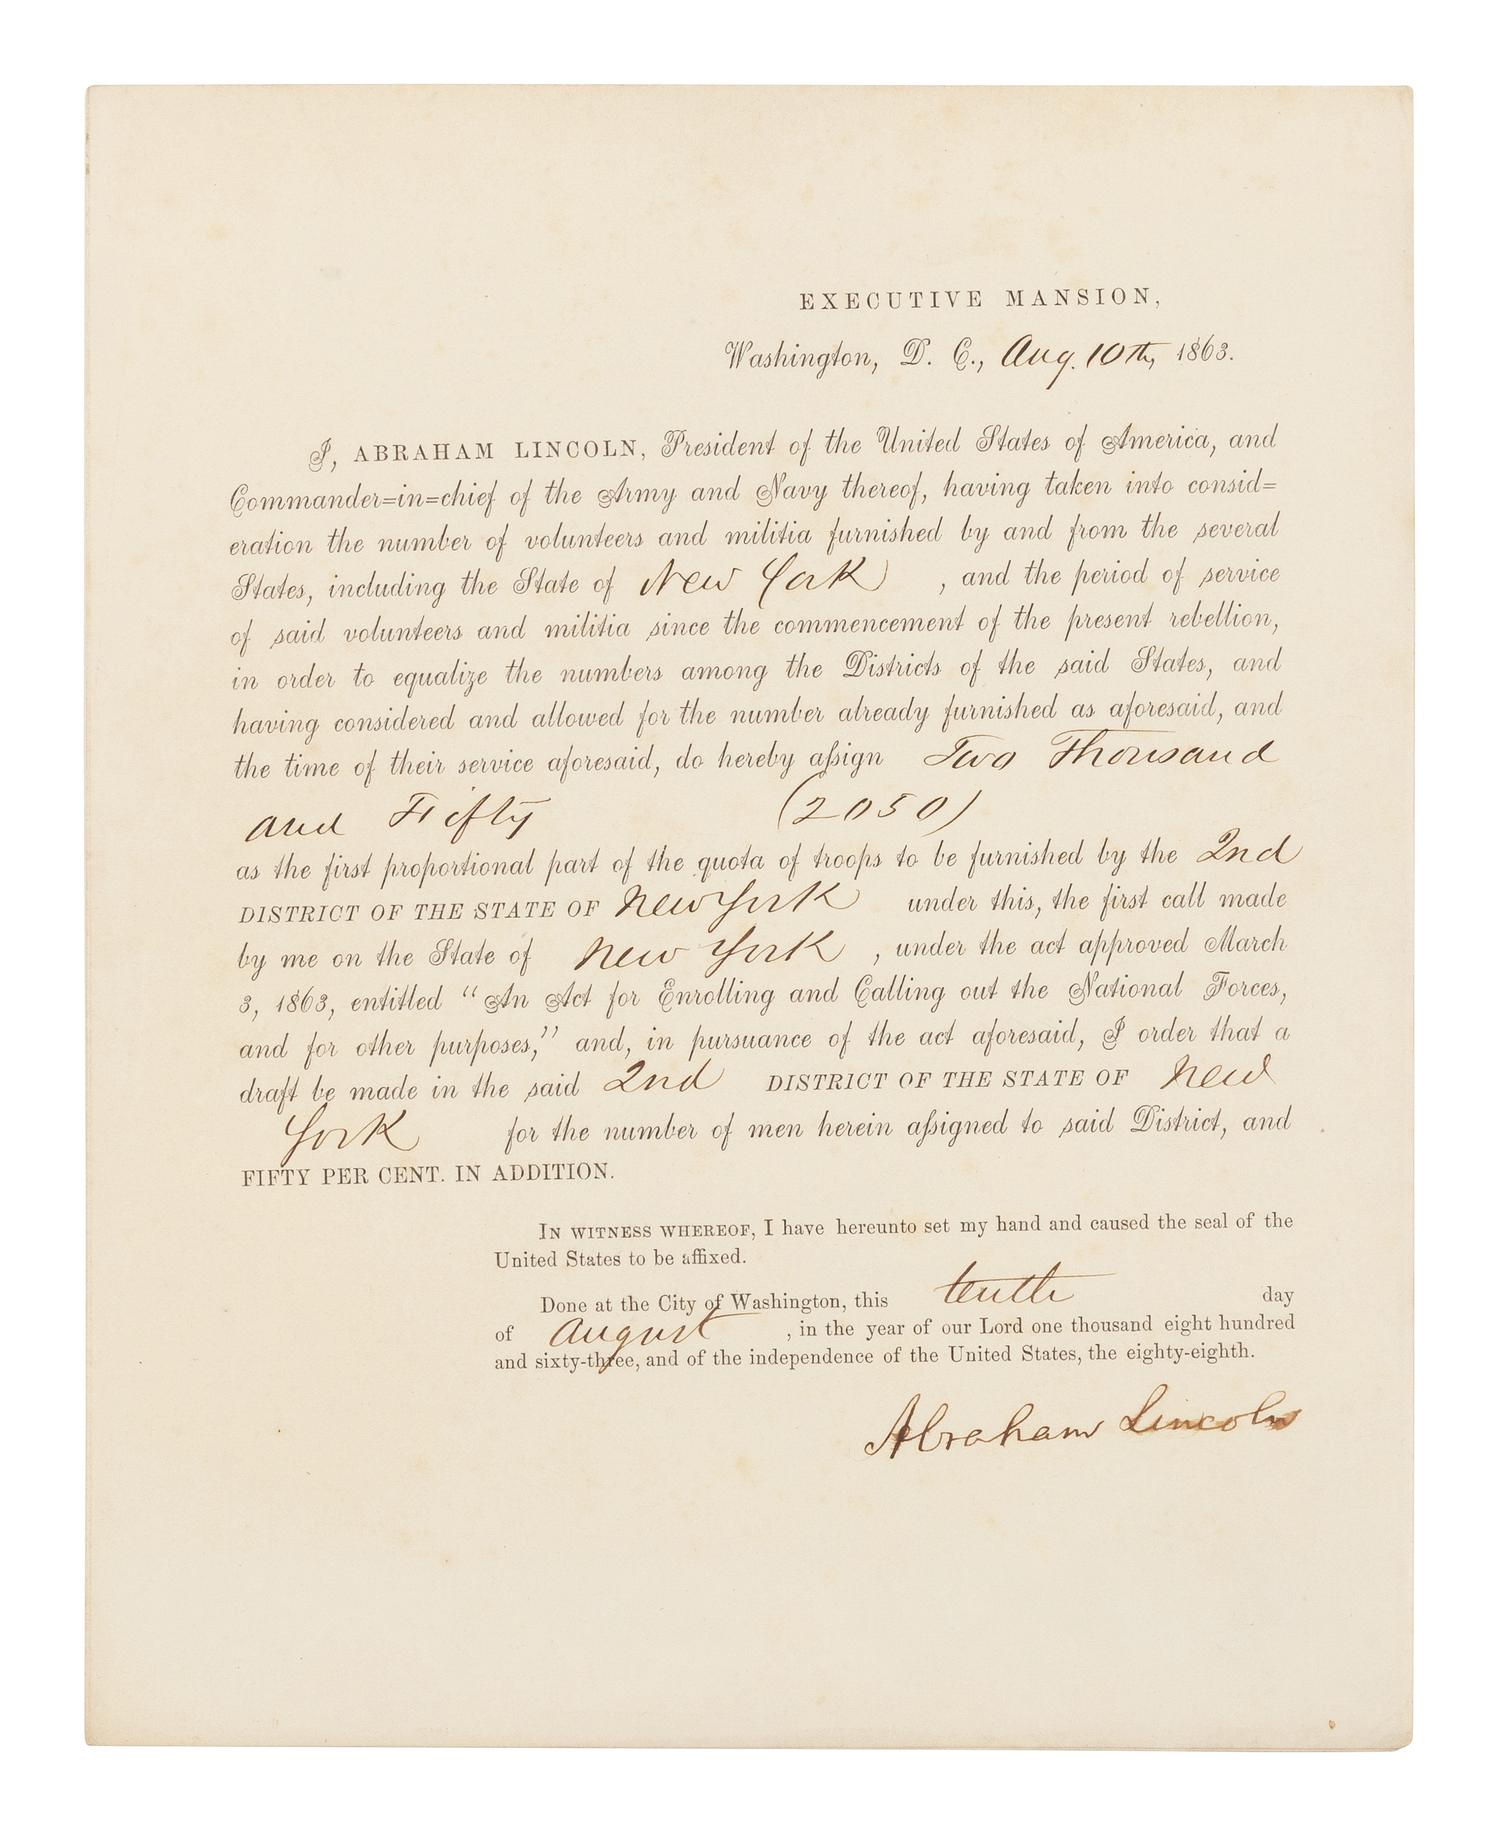 EXECUTIVE MANSION,
Washington, D. C., Aug. 10th, 1863.
I, ABRAHAM LINCOLN, President of the United States of America, and
Commander=in=chief of the Army and Navy thereof, having taken into consid=
eration the number of volunteers and militia furnished by and from the several
States, including the State of New York , and the period of service
of said volunteers and militia since the commencement of the present rebellion,
in order to equalize the numbers among the Districts of the said States, and
having considered and allowed for the number already furnished as aforesaid, and
the time of their service aforesaid, do hereby aſsign Two Thousand
and Fifty (2050)
as the first proportional part of the quota of troops to be furnished by the 2nd
DISTRICT OF THE STATE OF New York under this, the first call made
by me on the State of New York , under the act approved March
3, 1863, entitled “An Act for Enrolling and Calling out the National Forces,
and for other purposes,” and, in pursuance of the act aforesaid, I order that a
draft be made in the said 2nd DISTRICT OF THE STATE OF New
York for the number of men herein aſsigned to said District, and
FIFTY PER CENT. IN ADDITION.
IN WITNESS WHEREOF, I have hereunto set my hand and caused the seal of the
United States to be affixed.
Done at the City of Washington, this tenth day
of August , in the year of our Lord one thousand eight hundred
and sixty-three, and of the independence of the United States, the eighty-eighth.
Abraham Lincoln